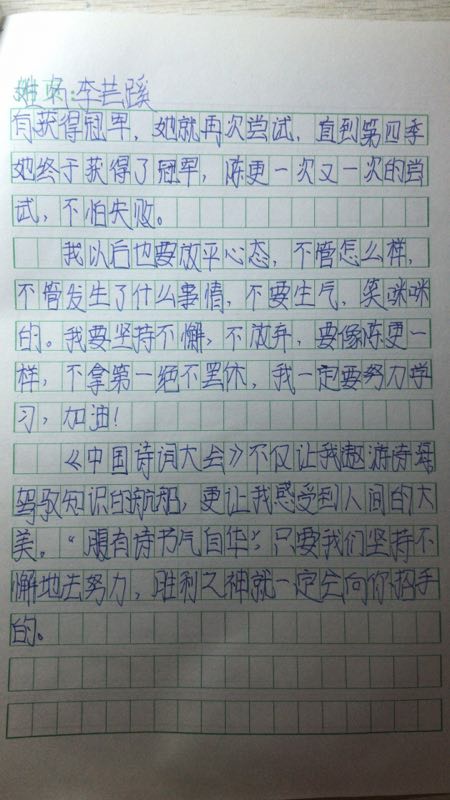 姓名:李芸蹊
有获得冠军，她就再次尝试，直到第四季
她终于获得了冠军，陈更一次又一次的尝
试，不怕失败。
我以后也要放平心态，不管怎么样，
不管发生了什么事情，不要生气，笑咪咪
的。我要坚持不懈，不放弃，要像陈更一
样，不拿第一绝不罢休，我一定要努力学
习，加油！
《中国诗词大会》不仅让我遨游诗海
驾驭知识的航船，更让我感受到人间的大
美。“腹有诗书气自华”，只要我们坚持不
懈地去努力，胜利之神就一定会向你招手
的。